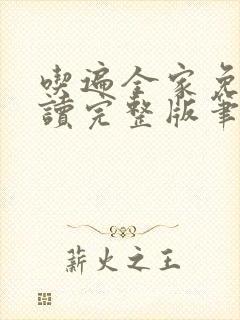 喫遍全家免
讀完整版筆
薪火之王